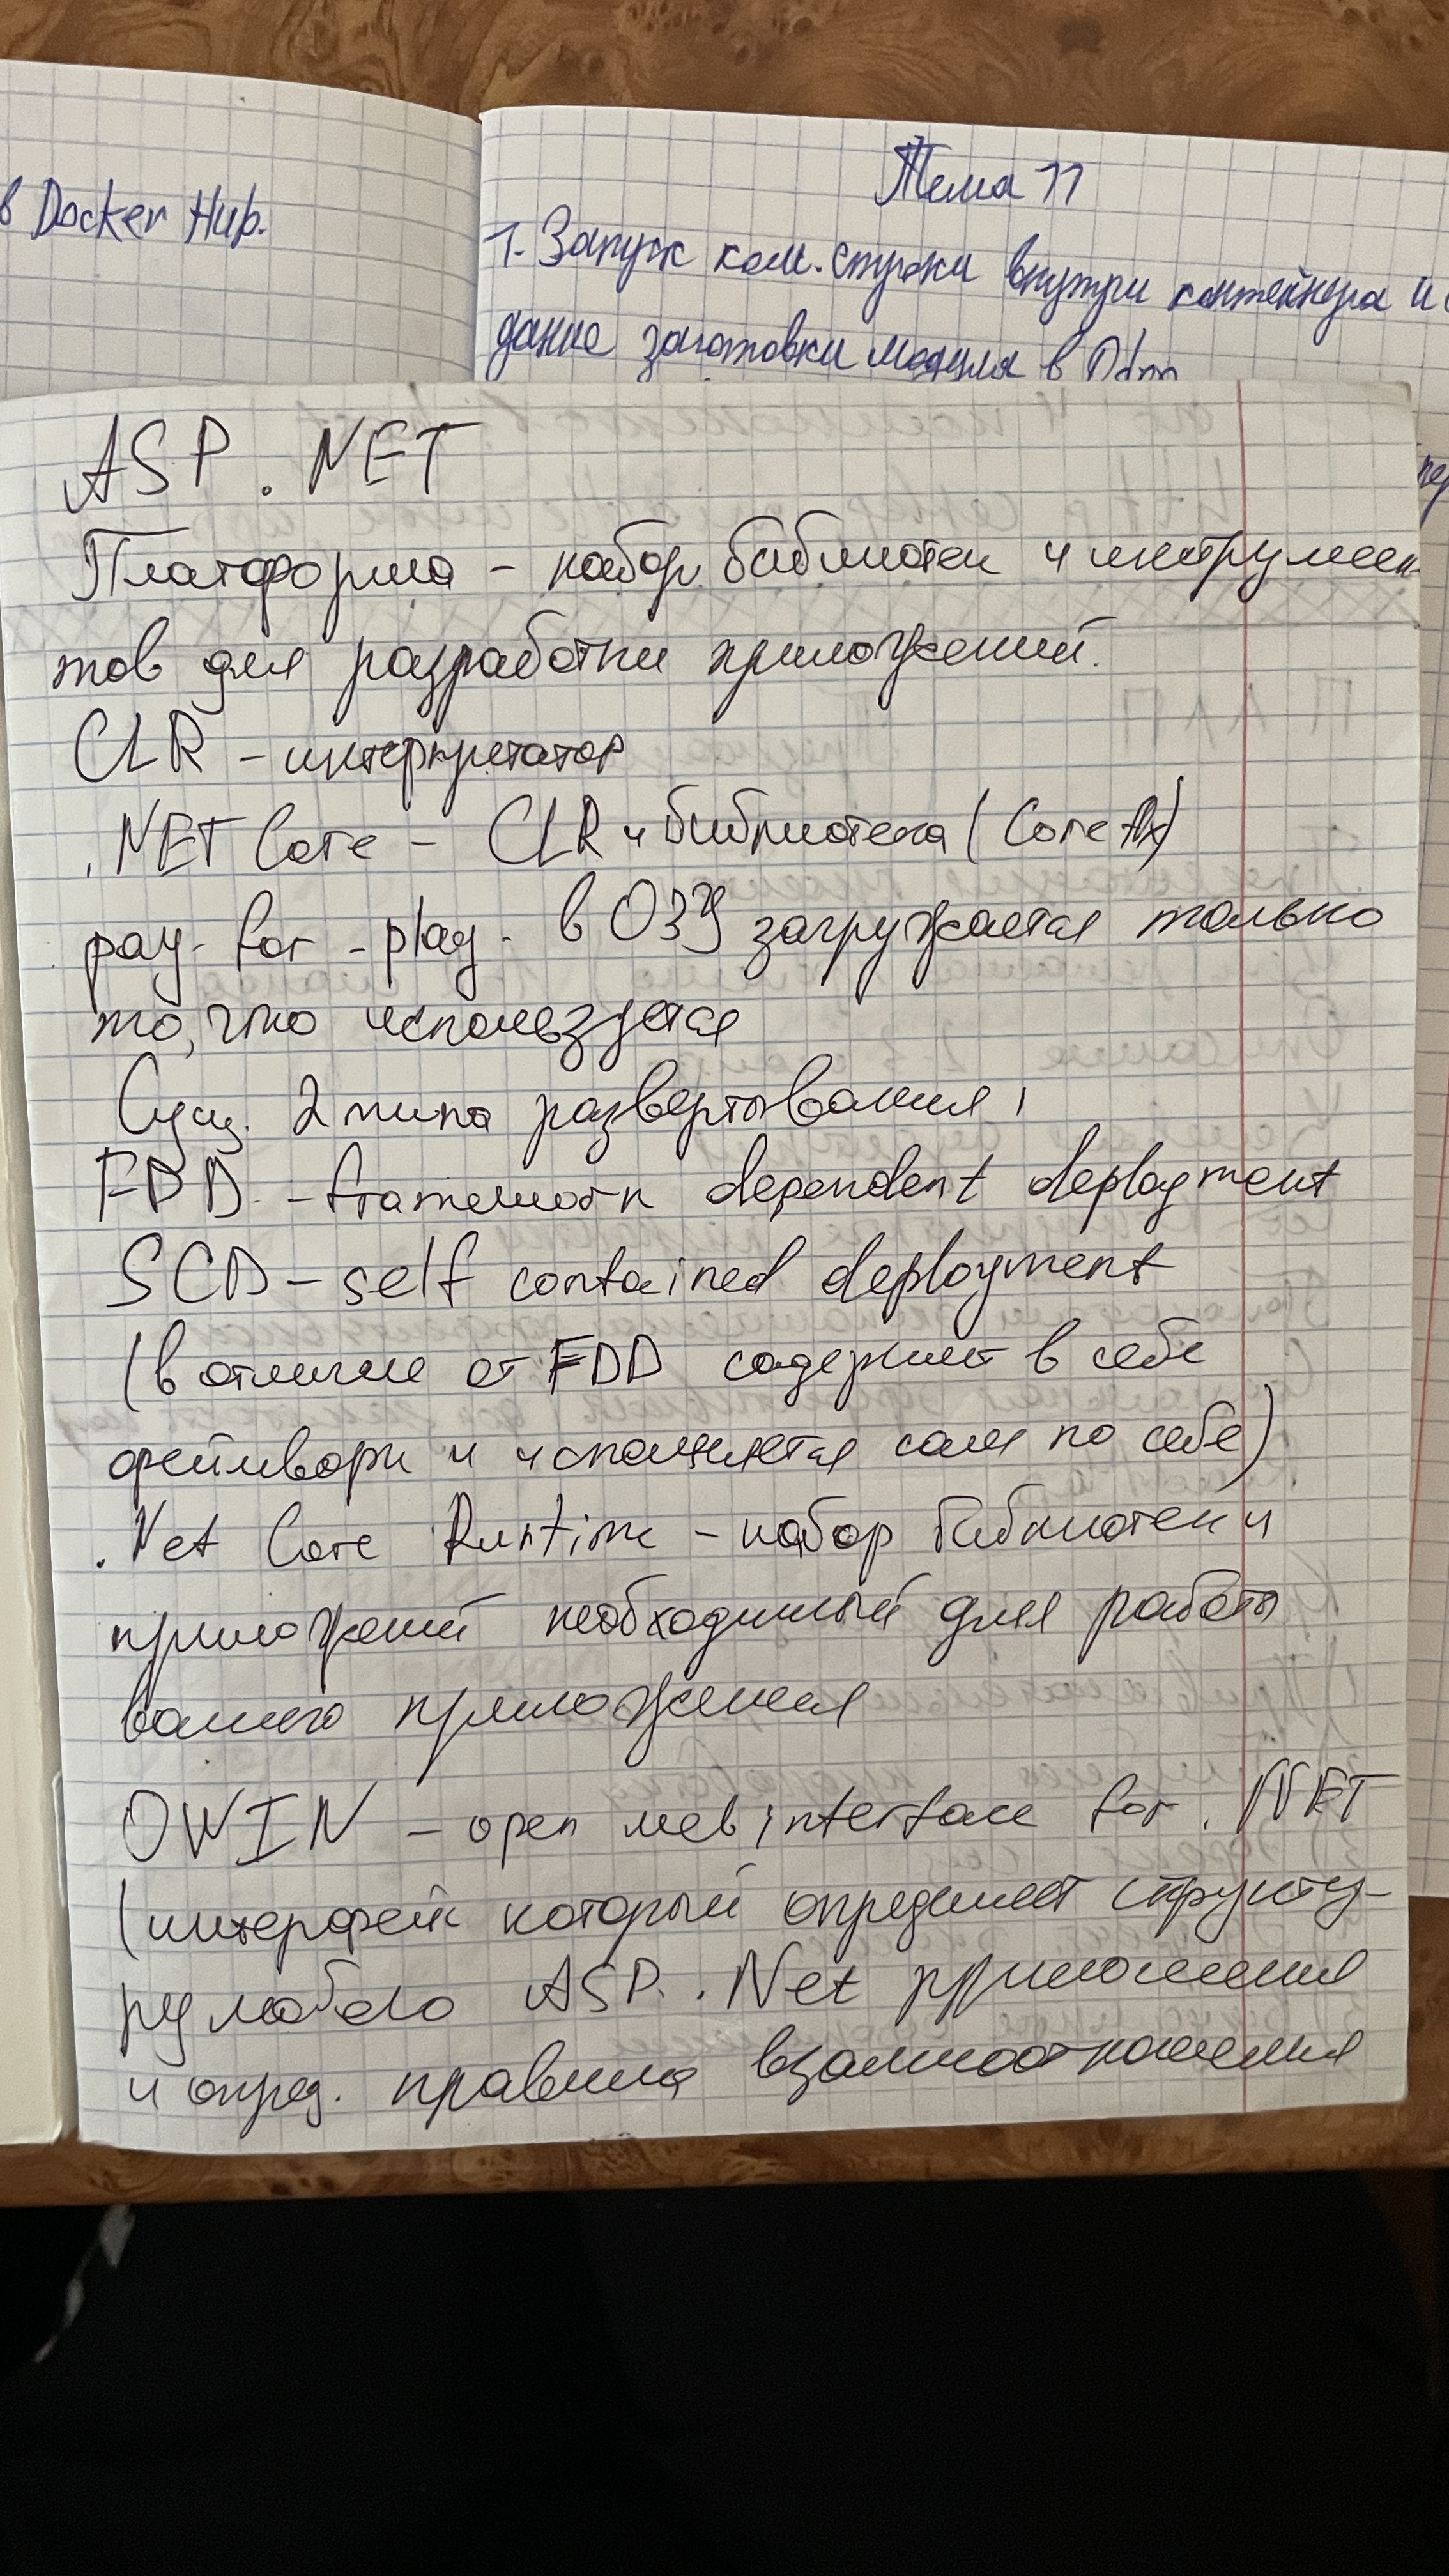 в Docker Hub.
Тема 11
1. Запуск ком. строки внутри контейнера и
дание заготовки модуля в Odoo
ASP.NET
Платформа - набор библиотек и инструмен
тов для разработки приложений.
CLR - интерпретатор
.NET Core - CLR и библиотека (Core fx)
pay-for-play - в ОЗУ загружается только
то, что используется
Сущ. 2 типа развертывания:
FDD - framework dependent deployment
SCD - self contained deployment
(в отличие от FDD содержит в себе
фреймворк и исполняется сам по себе)
.Net Core Runtime - набор библиотек и
приложений необходимый для работы
вашего приложения
OWIN - open web interface for .NET
(интерфейс который определяет структу-
ру любого ASP.Net приложения
и опред. правила взаимоотношения